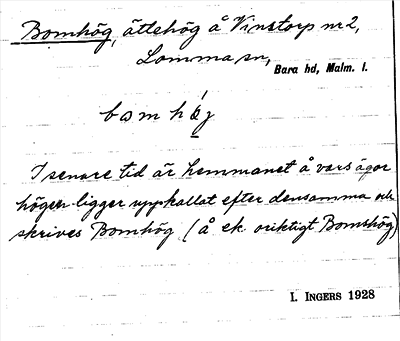 Bomhög, ättehög å Vinstorp nr 2,
Lomma sn,
Bara hd, Malm. l.
I senare tid är hemmanet å vars ägor
högen ligger uppkallat efter densamma och
skrives Bomhög (å ek. oriktigt Bomshög)
I. INGERS 1928